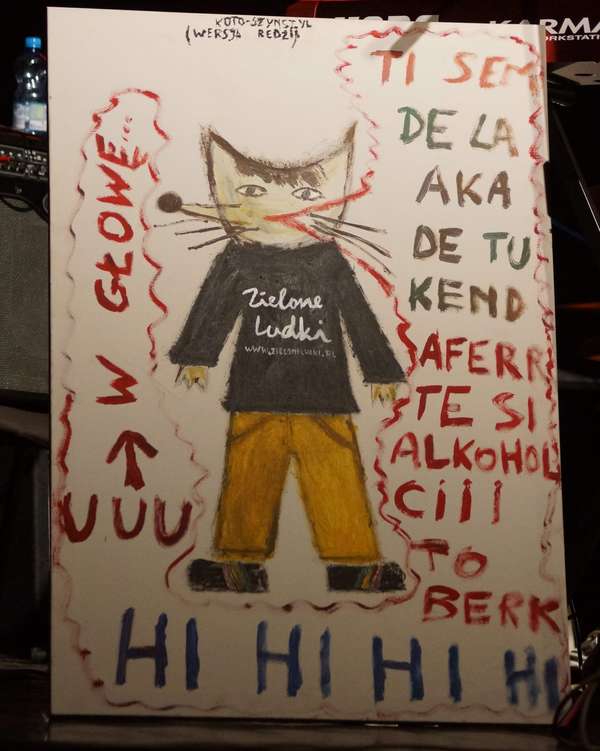 KOTO-SZYNSZYL
(WERSJA REDZI)
KARMA
WORKSTATION
W GŁOWĘ...
UUU
Zielone
Ludki
WWW.ZIELONELUDKI.PL
TI SEM
DE LA
AKA
DE TU
KEND
AFERR
TE SI
ALKOHOL
CIII
TO
BERK
HI HI HI HI